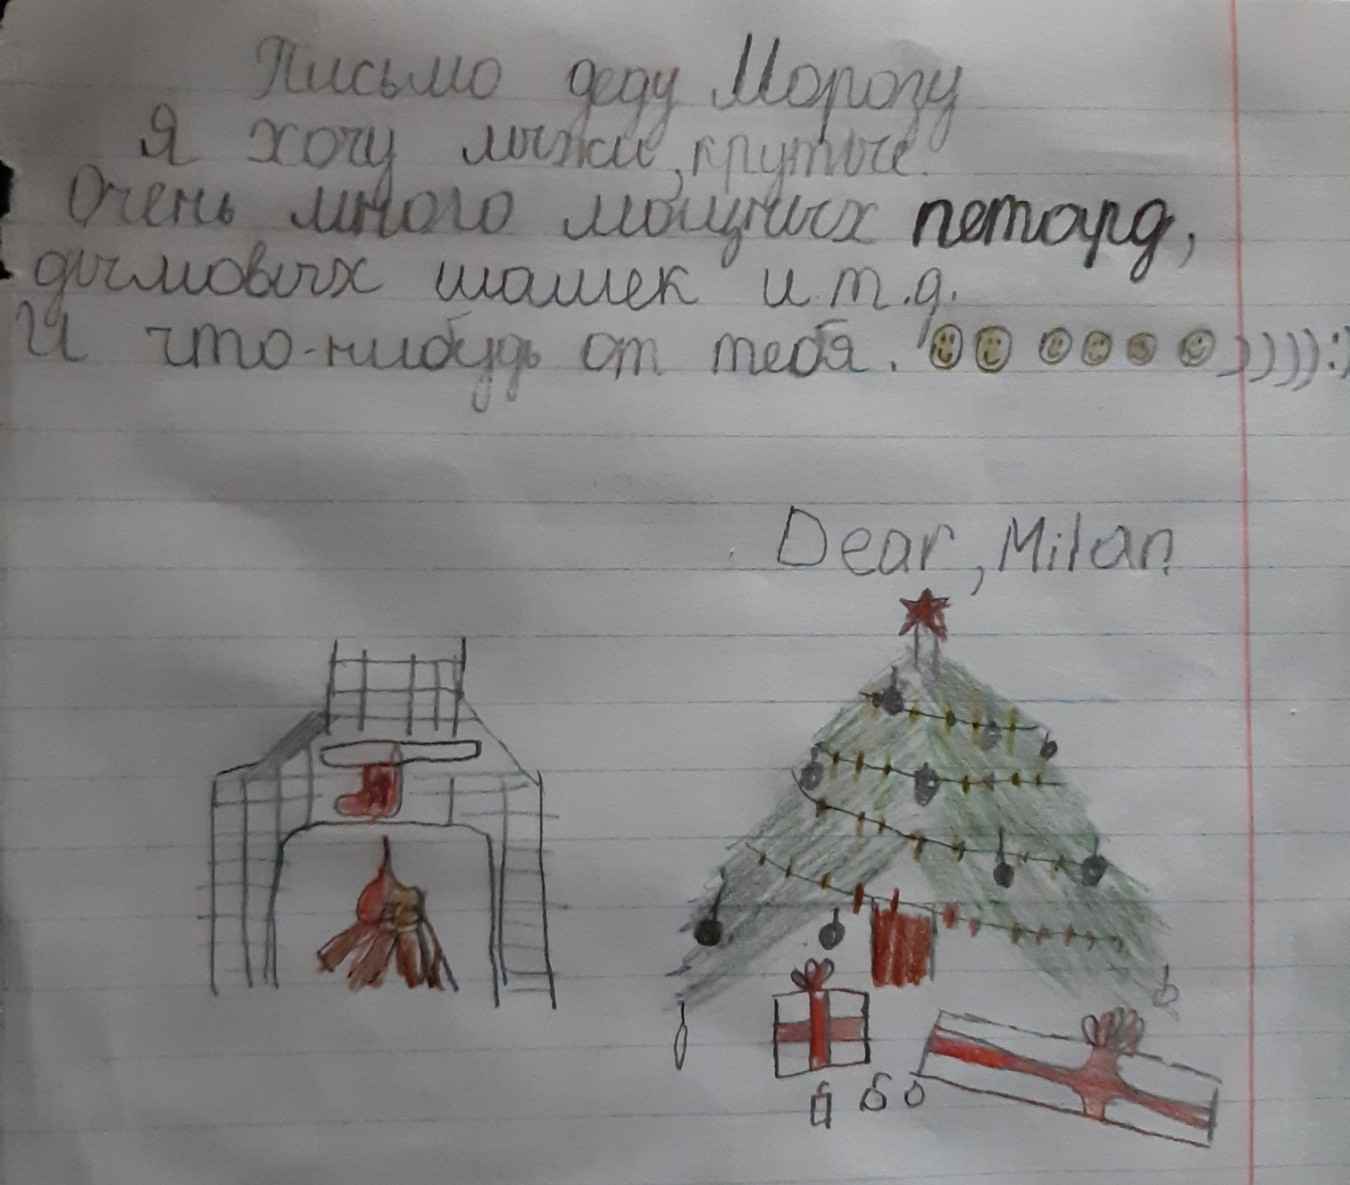 Письмо деду Морозу
Я хочу лыжи, крутые.
Очень много мощных петард,
дымовых шашек и т.д.
И что-нибудь от тебя. )))):)
Dear, Milan